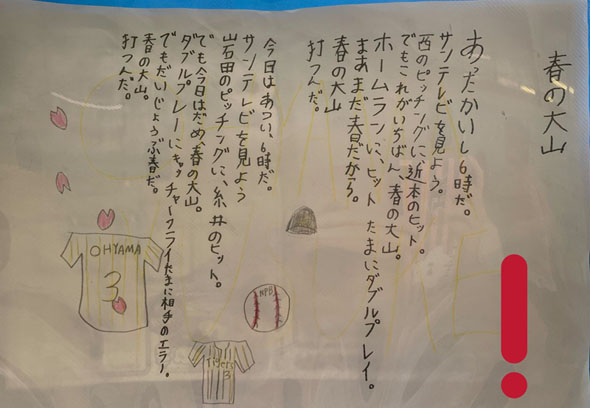 春の大山
あったかい6時だ。
サンテレビを見よう。
西のピッチングに、近本のヒット。
でもこれがいちばん、春の大山。
ホームランに、ヒット たまにダブルプレイ。
まあまだ春だから。
春の大山
打つんだ。
今日はあつい、6時だ。
サンテレビを見よう
岩田のピッチングに、糸井のヒット。
でも今日はだめ、春の大山。
ダブルプレーにキャッチャーフライたまに相手のエラー。
でもだいじょうぶ春だ。
春の大山。
打つんだ。
OHYAMA
3
NPB
Tigers
3